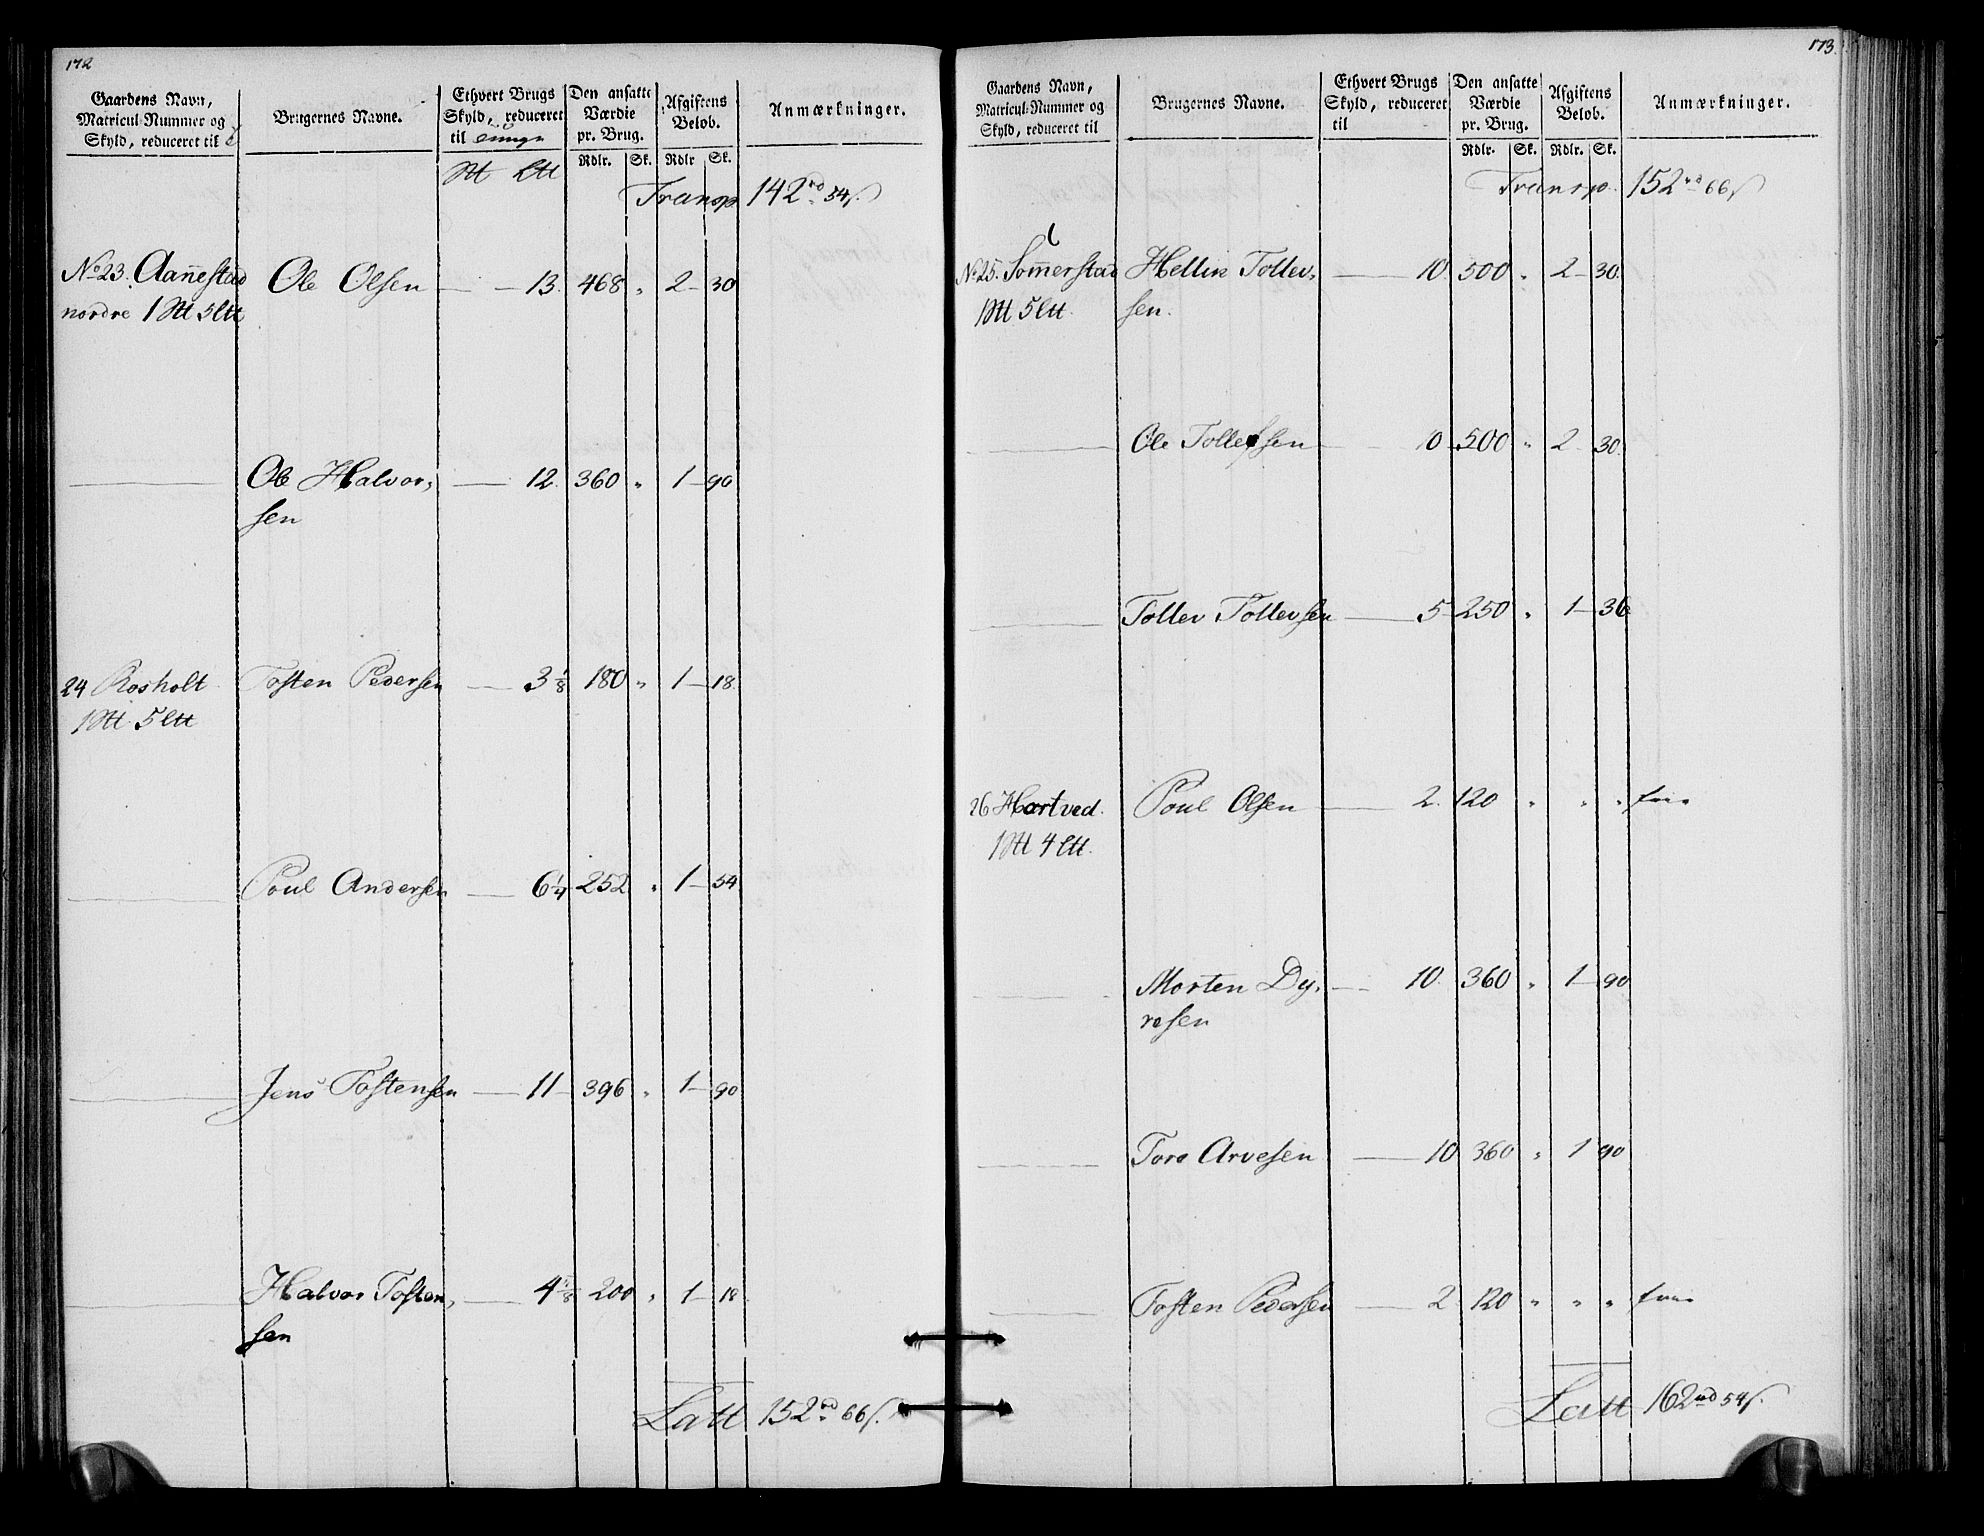 172
Gaardens Navn, Matricul-Nummer og Skyld, reduceret til
Brugernes Navne.
Ethvert Brugs Skyld, reduceret til
Den ansatte Værdie pr. Brug.
Afgiftens Beløb.
Anmærkninger.
Rdlr. Sk. Rdlr Sk.
Transp. 142 rd 54 s.
No 23. Aan̄estad Ole Olsen 13. 468 " 2 — 30
nordre 1 ℔ 5 l℔
Ole Halvor, 12. 360 " 1 — 90
sen
24 Rosholt Tosten Pedersen 3 1/8 180 " 1 — 18.
1 ℔ 5 l℔
Poul Andersen 6 1/4 252 " 1 — 54
Jens Tostensen 11 396 " 1 — 90
Halvor Tosten, 4 5/8 200 " 1 — 18
sen
Latt 152 rd 66 s.
173.
Gaardens Navn, Matricul-Nummer og Skyld, reduceret til
Brugernes Navne.
Ethvert Brugs Skyld, reduceret til
Den ansatte Værdie pr. Brug.
Afgiftens Beløb.
Anmærkninger.
Rdlr. Sk. Rdlr. Sk.
Transp. 152 rd 66 s
No 25. Som̄erstad Hellin Tollev, 10. 500 " 2 — 30.
1 ℔ 5 l℔. sen.
Ole Tollefsen 10 500 " 2 30.
Tollev Tollevsen 5 250 " 1 — 36
26 Hartved. Poul Olsen 2. 120 " " " frie
1 ℔ 4 l℔.
Morten Dy, 10. 360 " 1 — 90
resen
Tore Arvesen 10 360 " 1 90
Tosten Pedersen 2 120 " " " frie
Latt 162 rd 54 s.